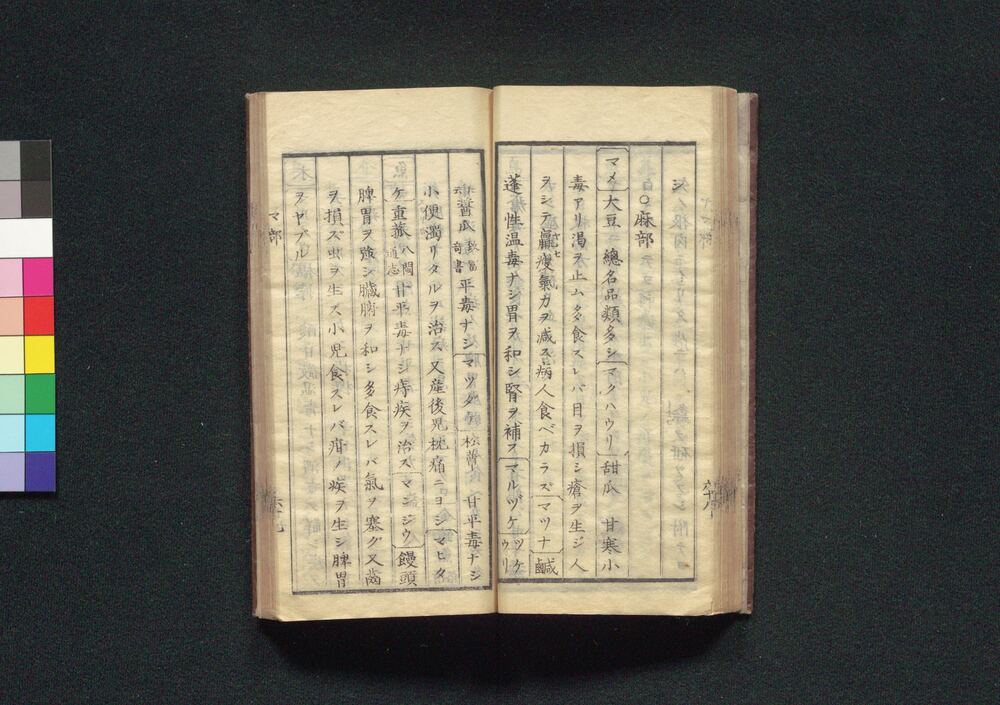 ○麻部
マメ 大豆ニ總名品類多シ マクハウリ 甜瓜 甘寒小
毒アリ渇ヲ止ム多食スレバ目ヲ損シ瘡ヲ生ジ人
ヲシテ羸痩氣力ヲ減ス病人食ベカラズ マツナ 鹹
蓬 性温毒ナシ胃ヲ和シ腎ヲ補フ マルヅケ ツケウリ
醤瓜 平毒ナシ マツタケ 松蕈 甘平毒ナシ
小便濁リタルヲ治ス又産後児枕痛ニヨシ マヒタ
ケ 重菰 八閩通志 甘平毒ナシ痔疾ヲ治ス マンジウ 饅頭
脾胃ヲ強シ臓腑ヲ和シ多食スレバ氣ヲ塞グ又齒
ヲ損ズ虫ヲ生ス小児食スレバ疳ノ疾ヲ生シ脾胃
ヲヤブル
マ部